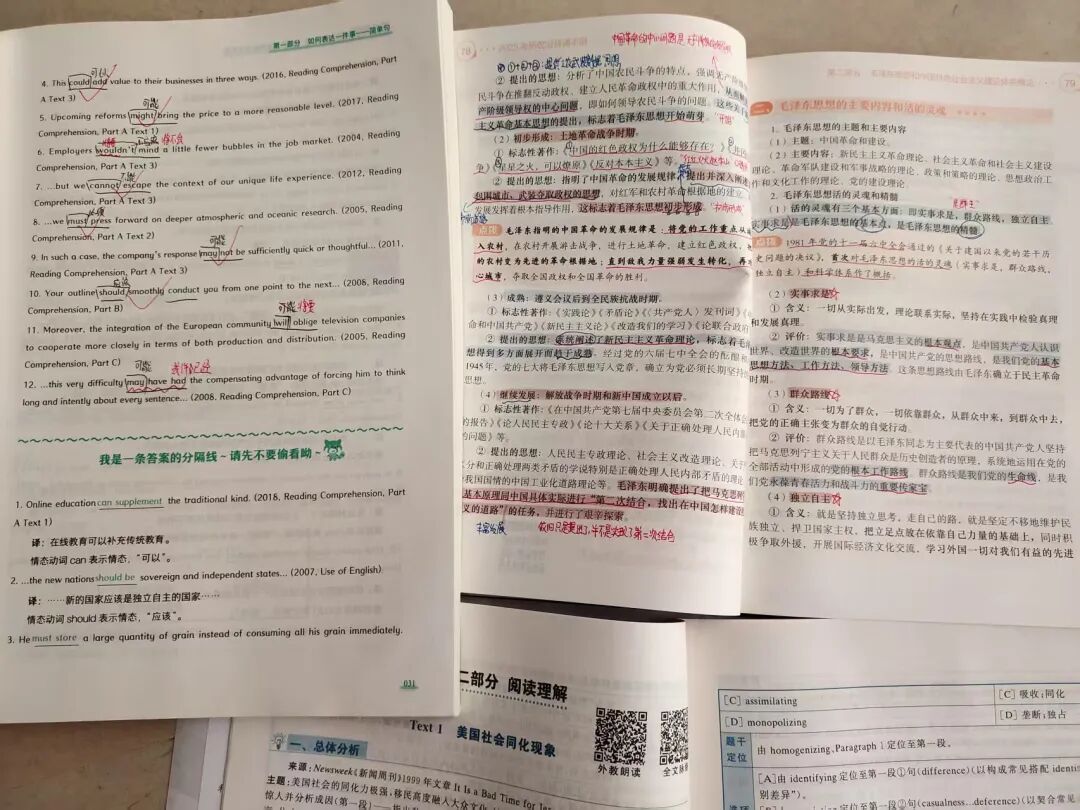 第一部分 如何表达一件事——简单句
可以
4. This could add value to their businesses in three ways. (2016, Reading Comprehension, Part
A Text 3)
可能
5. Upcoming reforms might bring the price to a more reasonable level. (2017, Reading
Comprehension, Part A Text 1)
6. Employers wouldn't mind a little fewer bubbles in the job market. (2004, Reading
Comprehension, Part A Text 3)
7. ...but we cannot escape the context of our unique life experience. (2012, Reading
Comprehension, Part A Text 3)
8. ...we must press forward on deeper atmospheric and oceanic research. (2005, Reading
Comprehension, Part A Text 2)
可能
9. In such a case, the company's response may not be sufficiently quick or thoughtful... (2011,
Reading Comprehension, Part A Text 3)
应该
10. Your outline should smoothly conduct you from one point to the next... (2008, Reading
Comprehension, Part B)
可能 将要
11. Moreover, the integration of the European community will oblige television companies
to cooperate more closely in terms of both production and distribution. (2005, Reading
Comprehension, Part C)
可能 或许已经
12. ...this very difficulty may have had the compensating advantage of forcing him to think
long and intently about every sentence... (2008, Reading Comprehension, Part C)
我是一条答案的分隔线~请先不要偷看哟~
1. Online education can supplement the traditional kind. (2018, Reading Comprehension, Part
A Text 1)
译：在线教育可以补充传统教育。
情态动词 can 表示情态，“可以”。
2. ...the new nations should be sovereign and independent states... (2007, Use of English)
译：……新的国家应该是独立自主的国家……
情态动词 should 表示情态，“应该”。
3. He must store a large quantity of grain instead of consuming all his grain immediately.
031
78
② 提出的思想：分析了中国农民斗争的特点，强调无产阶级
民斗争在推翻反动政权、建立人民革命政权中的重大作用，
产阶级领导权的中心问题，即如何领导农民斗争的问题。这些关于
主义革命基本思想的提出，标志着毛泽东思想开始萌芽。
（2）初步形成：土地革命战争时期。
① 标志性著作：《中国的红色政权为什么能够存在？》
争》《星星之火，可以燎原》《反对本本主义》等。
② 提出的思想：指明了中国革命的发展规律，提出并深入阐述
包围城市、武装夺取政权的思想，对红军和农村革命根据地的建立、
发展发挥着根本指导作用，这标志着毛泽东思想初步形成。
点拨 毛泽东指明的中国革命的发展规律是：将党的工作重点从
入农村，在农村开展游击战争，进行土地革命，建立红色政权，
的农村变为先进的革命根据地；直到敌我力量强弱发生转化，再
心城市，争取全国政权和全国革命的胜利。
（3）成熟：遵义会议后到全民族抗战时期。
① 标志性著作：《实践论》《矛盾论》《〈共产党人〉发刊词》《
命和中国共产党》《新民主主义论》《改造我们的学习》《论联合政府
② 提出的思想：系统阐述了新民主主义革命理论，标志着毛
想得到多方面展开而趋于成熟。经过党的六届七中全会的酝酿和
1945年，党的七大将毛泽东思想写入党章，确立为党必须长期坚持的
思想。
（4）继续发展：解放战争时期和新中国成立以后。
① 标志性著作：《在中国共产党第七届中央委员会第二次全体会
的报告》《论人民民主专政》《论十大关系》《关于正确处理人民内部
的问题》等。
② 提出的思想：人民民主专政理论、社会主义改造理论、关于
分和正确处理两类矛盾的学说特别是正确处理人民内部矛盾的理论
合我国国情的中国工业化道路理论等。毛泽东明确提出了把马克思列
基本原理同中国具体实际进行“第二次结合，找出在中国怎样建设
义的道路”的任务，并进行了艰辛探索。
丰富发展
79
毛泽东思想的主要内容和活的灵魂
1. 毛泽东思想的主题和主要内容
（1）主题：中国革命和建设。
（2）主要内容：新民主主义革命理论、社会主义革命和社会主义建设
理论、革命军队建设和军事战略的理论、政策和策略的理论、思想政治工
作和文化工作的理论、党的建设理论。
2. 毛泽东思想活的灵魂和精髓
（1）活的灵魂有三个基本方面：即实事求是，群众路线，独立自主
实事求是是毛泽东思想的基本点，是毛泽东思想的精髓
点拨 1981年党的十一届六中全会通过的《关于建国以来党的若干历
史问题的决议》，首次对毛泽东思想的活的灵魂（实事求是，群众路线，
独立自主）和科学体系作了概括。
（2）实事求是
① 含义：一切从实际出发，理论联系实际，坚持在实践中检验真理
和发展真理。
② 评价：实事求是是马克思主义的根本观点，是中国共产党人认识
世界、改造世界的根本要求，是中国共产党的思想路线，是我们党的基本
思想方法、工作方法、领导方法。这条思想路线由毛泽东确立于民主革命
时期。
（3）群众路线
① 含义：一切为了群众，一切依靠群众，从群众中来，到群众中去，
把党的正确主张变为群众的自觉行动。
② 评价：群众路线是以毛泽东同志为主要代表的中国共产党人坚持
把马克思列宁主义关于人民群众是历史创造者的原理，系统地运用在党的
全部活动中形成的党的根本工作路线。群众路线是我们党的生命线，是我
们党永葆青春活力和战斗力的重要传家宝
（4）独立自主
① 含义：就是坚持独立思考，走自己的路，就是坚定不移地维护民
族独立、捍卫国家主权，把立足点放在依靠自己力量的基础上，同时积
极争取外援，开展国际经济文化交流，学习外国一切对我们有益的先进
二部分 阅读理解
Text 1 美国社会同化现象
外教朗读
全文脉
一、总体分析
来源：Newsweek《新闻周刊》1999年文章 It Is a Bad Time for
主题：美国社会的同化力极强；移民高度融入大众文化
惊人并分析成因（第一段）——指出
[C] assimilating
[D] monopolizing
[C] 吸收；同化
[D] 垄断；独占
题干
定位
由 homogenizing, Paragraph 1 定位至第一段。
[A]由 identifying 定位至第一段①句(difference)（以构成常见搭配 identi
别差异”）。